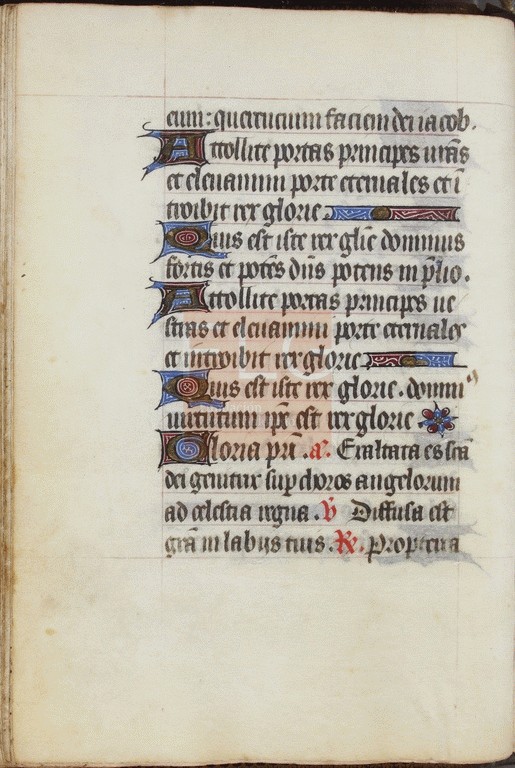 eum: querentium faciem dei iacob.
Attollite portas principes ur̃as
et eleuamini porte eternales et ĩ
troibit rex glorie
Quis est iste rex gl̃ie dominus
fortis et potẽs dñs potens in p̃lio.
Attollite portas principes ue
stras et eleuamini porte eternales
et introibit rex glorie
Quis est iste rex glorie. domin9
uirtutum ip̃e est rex glorie
Gloria pr̃i. a͂. Exaltata es sc̃a
dei genitrix sup choros angelorum
ad celestia regna. V̄ Diffusa est
gr̃a in labijs tuis. R̃. Propterea